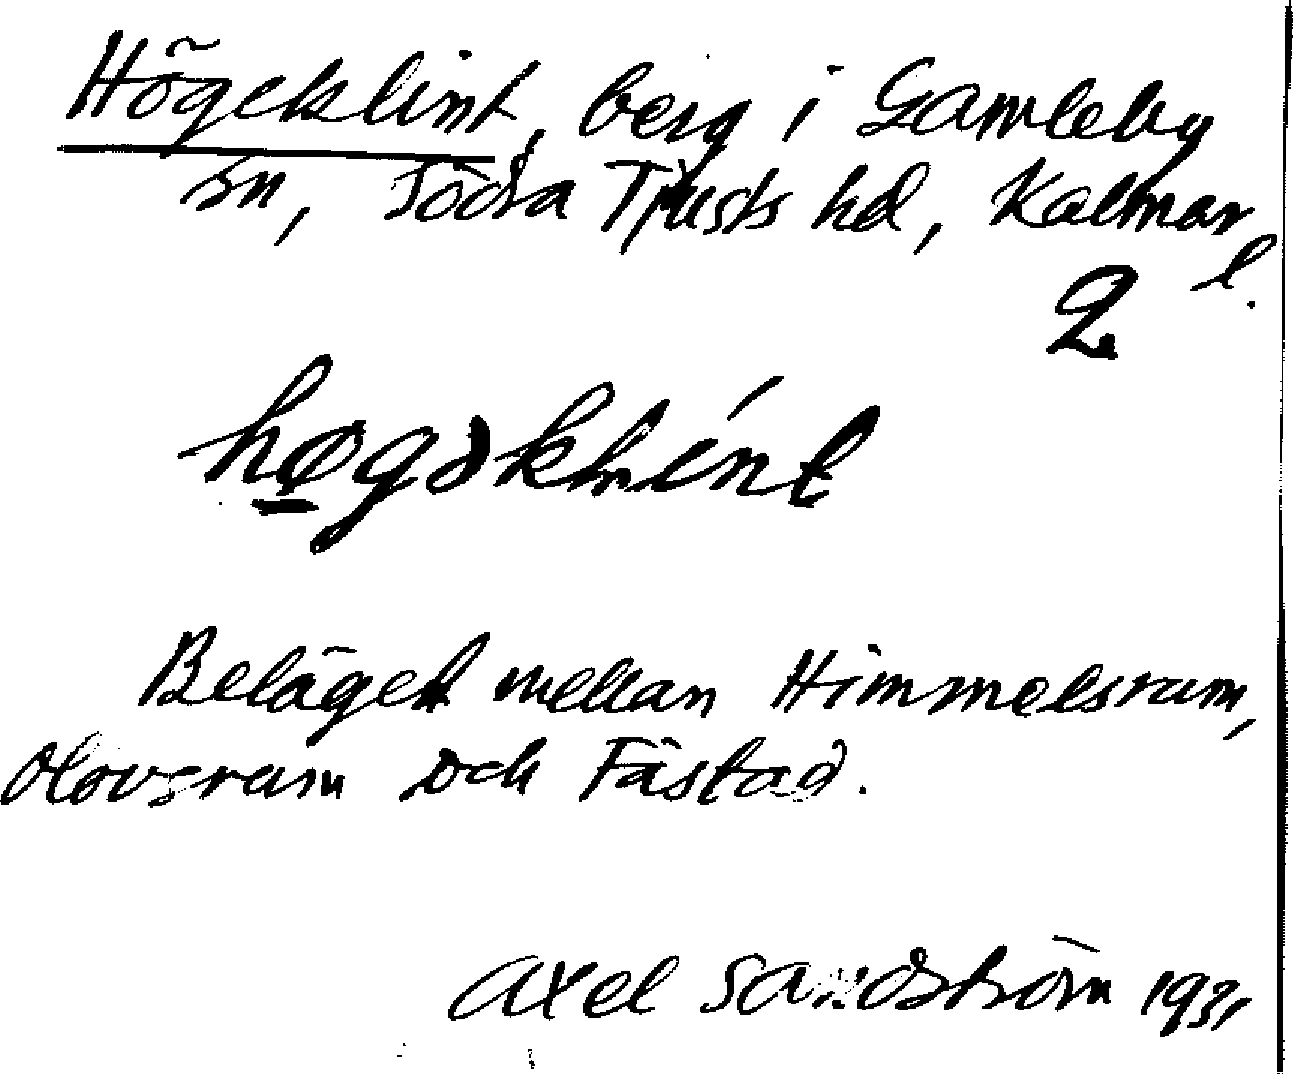 Högeklint, berg i Gamleby
sn, Södra Tjusts hd, Kalmar
l.
2
høgəklint
Beläget mellan Himmelsrum,
Olovsrum och Fästad.
Axel Sandström 1931